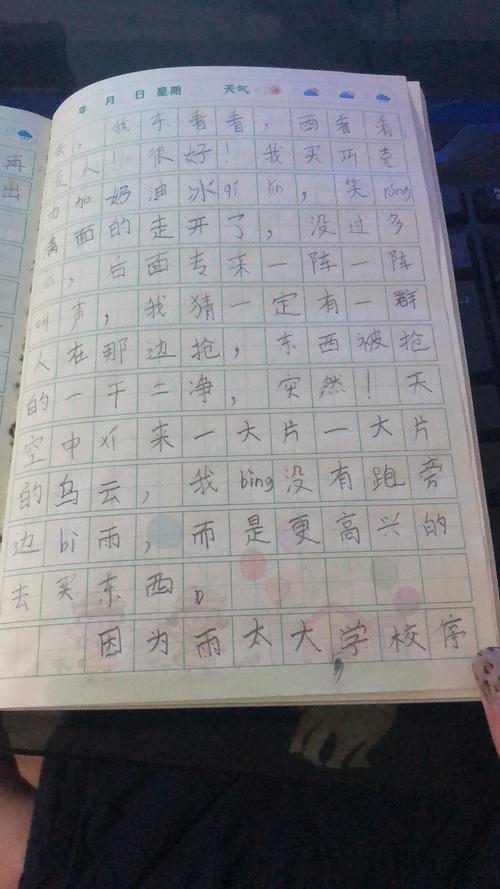 再
出
年 月 日 星期 天气
，我东看看，西看看，
人！很好！我买巧克
力加奶油冰qí lín，笑róng
满面的走开了，没过多
，后面专来一阵一阵
叫声，我猜一定有一群
人在那边抢，东西被抢
的一干二净，突然！天
空中来一大片一大片
的乌云，我bìng没有跑旁
边bì雨，而是更高兴的
去买东西。
因为雨太大，学校序